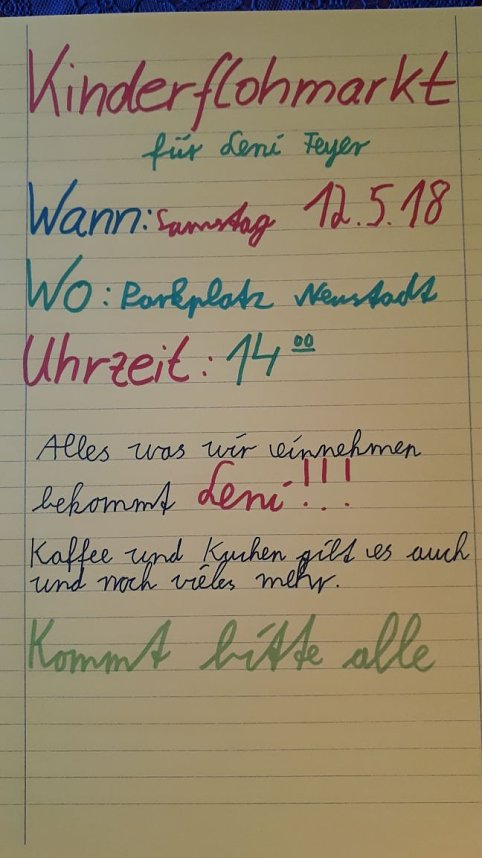 Kinderflohmarkt
für Leni Feyer
Wann: Samstag 12.5.18
Wo: Parkplatz Neustadt
Uhrzeit: 14 00
Alles was wir einnehmen
bekommt Leni!!!
Kaffee und Kuchen gibt es auch
und noch vieles mehr.
Kommt bitte alle